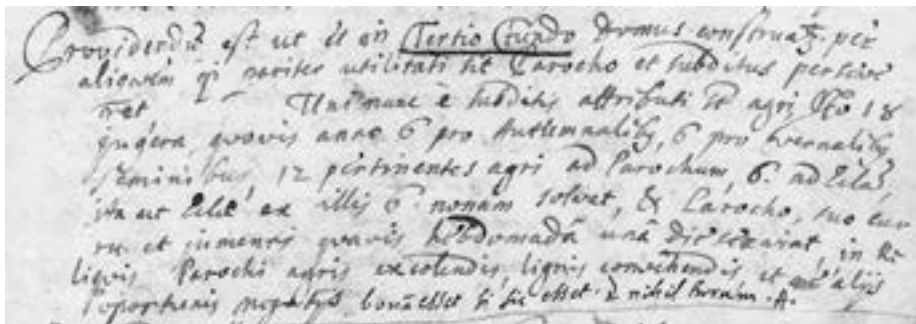 Providendū est ut is in Tertio Fundo Domus construatȝ. per
aliquem qi pariter utilitati sit Parocho et subditus perseve
ret Uni nunc è subditis attributi st agri No 18
jugera quovis anno 6 pro Autumnalibȝ, 6 pro vernalibȝ
seminibus, 12 pertinentes agri ad Parochum, 6. ad
ita ut ex illis 6 nonam solvat, & Parocho, suo cur
ru et jumentis quavis hebdomadâ unâ die serviat, in Re
liquis Parochi agris excolendis, lignis convehendis et alijs
oportunis negotijs bonū esset si sic esset. nihil horum .A.